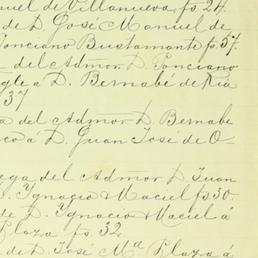 uel de Villanueva, fs 24.
de D. José Manuel de
Ponciano Bustamante fs 37.
del Admor. D. Ponciano
gle a D. Bernabé de Ria
37
a del Admor D. Bernabe
co á D. Juan José de O-
ega del Admor D Juan
D. Ygnacio Maciel fs 30.
de D. Ygnacio Maciel á
Plaza fs. 32
de D. José Mª Plaza á